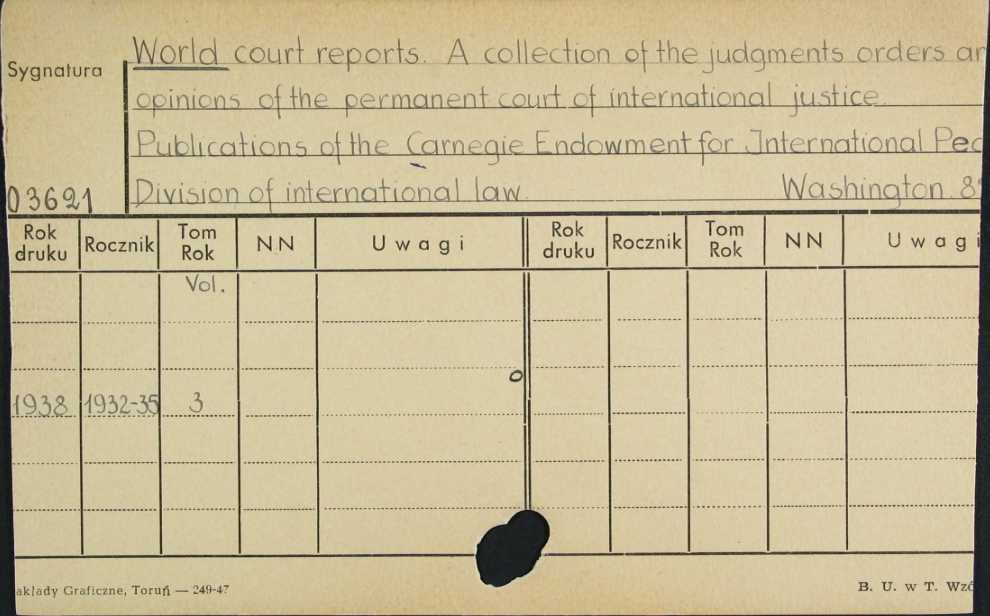 World court reports. A collection of the judgments orders
Sygnatura
opinions of the permanent court of international justice.
Publications of the Carnegie Endowment for International
03621
Division of international law. Washington. 8
Rok druku Rocznik Tom Rok NN Uwagi Rok druku Rocznik Tom Rok NN Uwagi
Vol.
1938 1932-35 3
akłady Graficzne, Toruń — 249-47 B. U. w T.